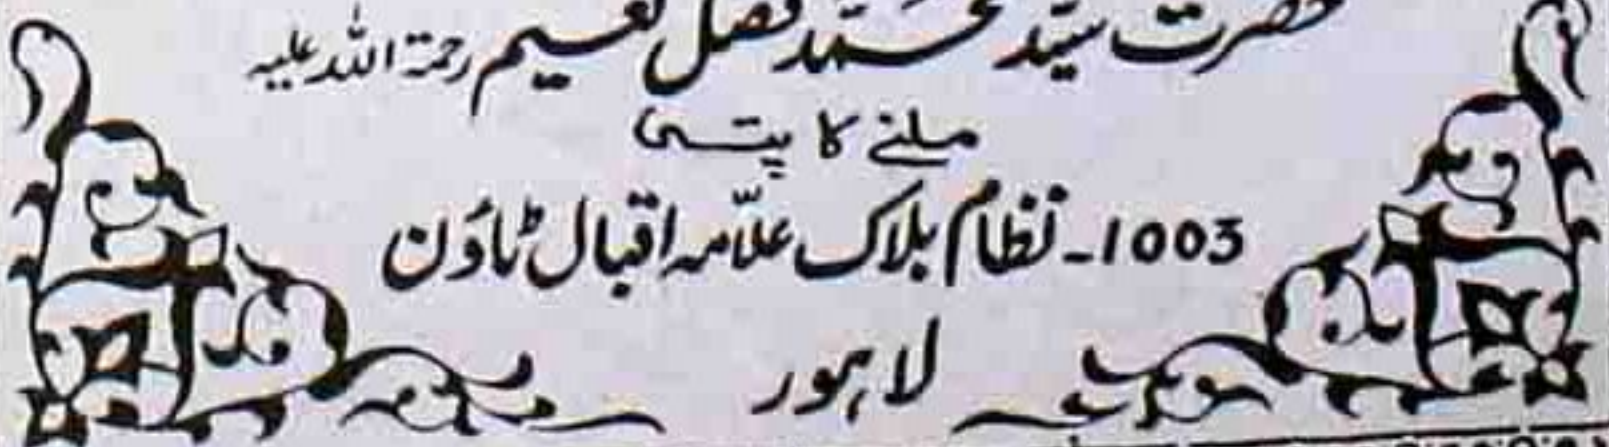 حضرت سید محمد فضل نعیم رحمۃ اللہ علیہ
ملنے کا پتہ
1003۔ نظام بلاک علّامہ اقبال ٹاؤن
لاہور